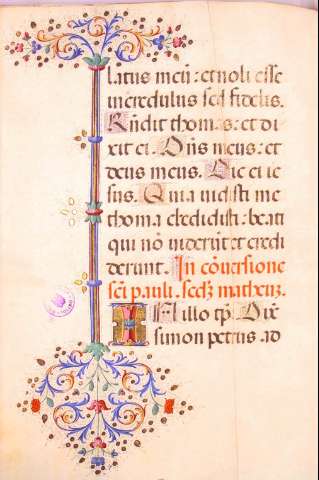 latus meū: et noli esse
incredulus sed fidelis.
Rñdit thomas: et di
xit ei. Dñs meus: et
deus meus. Dic ei ie
sus. Quia uidisti me
thoma credidisti: beati
qui nō uiderūt et credi
derunt. In cōuersione
scī pauli. secdȝ matheuȝ.
IN illo tp̄. Dix̄
simon petrus ad